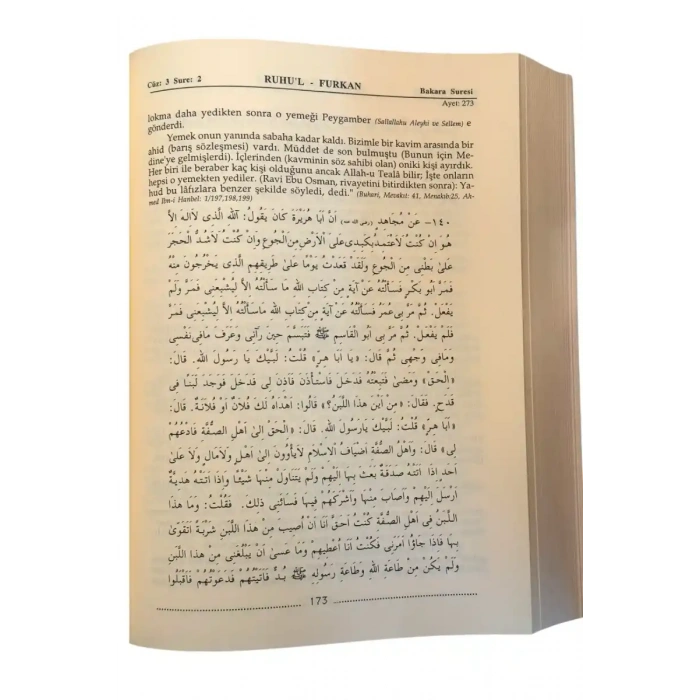 Cüz: 3 Sure: 2 RUHU'L - FURKAN Bakara Suresi
Ayet: 273
lokma daha yedikten sonra o yemeği Peygamber (Sallallahu Aleyhi ve Sellem) e
gönderdi.
Yemek onun yanında sabaha kadar kaldı. Bizimle bir kavim arasında bir
ahid (barış sözleşmesi) vardı. Müddet de son bulmuştu (Bunun için Me-
dine'ye gelmişlerdi). İçlerinden (kavminin söz sahibi olan) oniki kişi ayırdık.
Her biri ile beraber kaç kişi olduğunu ancak Allah-u Tealâ bilir; İşte onların
hepsi o yemekten yediler. (Ravi Ebu Osman, rivayetini bitirdikten sonra): Ya-
hud bu lâfızlara benzer şekilde söyledi, dedi." (Buhari, Menakıb: 41, Menakıb:25, Ah-
med İbn-i Hanbel: 1/197,198,199)
١٤٠- عَنْ مُجَاهِدٍ (رضي الله عنه) أَنَّ أَبَا هُرَيْرَةَ كَانَ يَقُولُ: آللهِ الَّذِى لَا اِلٰهَ اِلاَّ
هُوَ اِنْ كُنْتُ لَاَعْتَمِدُ بِكَبِدِى عَلَى الْاَرْضِ مِنَ الْجُوعِ وَاِنْ كُنْتُ لَاَشُدُّ الْحَجَرَ
عَلىٰ بَطْنِى مِنَ الْجُوعِ وَلَقَدْ قَعَدْتُ يَوْمًا عَلىٰ طَرِيقِهِمِ الَّذِى يَخْرُجُونَ مِنْهُ
فَمَرَّ اَبُو بَكْرٍ فَسَأَلْتُهُ عَنْ آيَةٍ مِنْ كِتَابِ اللهِ مَا سَأَلْتُهُ اِلاَّ لِيُشْبِعَنِى فَمَرَّ وَلَمْ
يَفْعَلْ. ثُمَّ مَرَّ بِى عُمَرُ فَسَأَلْتُهُ عَنْ آيَةٍ مِنْ كِتَابِ اللهِ مَاسَأَلْتُهُ اِلاَّ لِيُشْبِعَنِى فَمَرَّ
فَلَمْ يَفْعَلْ. ثُمَّ مَرَّ بِى اَبُو الْقَاسِمِ ﷺ فَتَبَسَّمَ حِينَ رَآنِى وَعَرَفَ مَافِى نَفْسِى
وَمَافِى وَجْهِى ثُمَّ قَالَ: «يَا اَبَا هِرٍّ» قُلْتُ: لَبَّيْكَ يَا رَسُولَ اللهِ. قَالَ:
«اَلْحَقْ» وَمَضىٰ فَتَبِعْتُهُ فَدَخَلَ فَاسْتَأْذَنَ فَاَذِنَ لِى فَدَخَلَ فَوَجَدَ لَبَنًا فِى
قَدَحٍ. فَقَالَ: «مِنْ اَيْنَ هٰذَا اللَّبَنُ؟» قَالُوا: اَهْدَاهُ لَكَ فُلاَنٌ اَوْ فُلاَنَةٌ. قَالَ:
«اَبَا هِرٍّ» قُلْتُ: لَبَّيْكَ يَارَسُولَ اللهِ. قَالَ: «اَلْحَقْ اِلىٰ اَهْلِ الصُّفَّةِ فَادْعُهُمْ
لِى» قَالَ: وَاَهْلُ الصُّفَّةِ اَضْيَافُ الْاِسْلَامِ لَايَأْوُونَ اِلىٰ اَهْلٍ وَلَامَالٍ وَلَا عَلىٰ
اَحَدٍ اِذَا اَتَتْهُ صَدَقَةٌ بَعَثَ بِهَا اِلَيْهِمْ وَلَمْ يَتَنَاوَلْ مِنْهَا شَيْئًا وَاِذَا اَتَتْهُ هَدِيَّةٌ
اَرْسَلَ اِلَيْهِمْ وَاَصَابَ مِنْهَا وَاَشْرَكَهُمْ فِيهَا فَسَائَنِى ذٰلِكَ. فَقُلْتُ: وَمَا هٰذَا
اللَّبَنُ فِى اَهْلِ الصُّفَّةِ كُنْتُ اَحَقَّ اَنَا اَنْ اُصِيبَ مِنْ هٰذَا اللَّبَنِ شَرْبَةً اَتَقَوّىٰ
بِهَا فَاِذَا جَاؤُا اَمَرَنِى فَكُنْتُ اَنَا اُعْطِيهِمْ وَمَا عَسىٰ اَنْ يَبْلُغَنِى مِنْ هٰذَا اللَّبَنِ
وَلَمْ يَكُنْ مِنْ طَاعَةِ اللهِ وَطَاعَةِ رَسُولِهِ ﷺ بُدٌّ فَاَتَيْتُهُمْ فَدَعَوْتُهُمْ فَاَقْبَلُوا
173